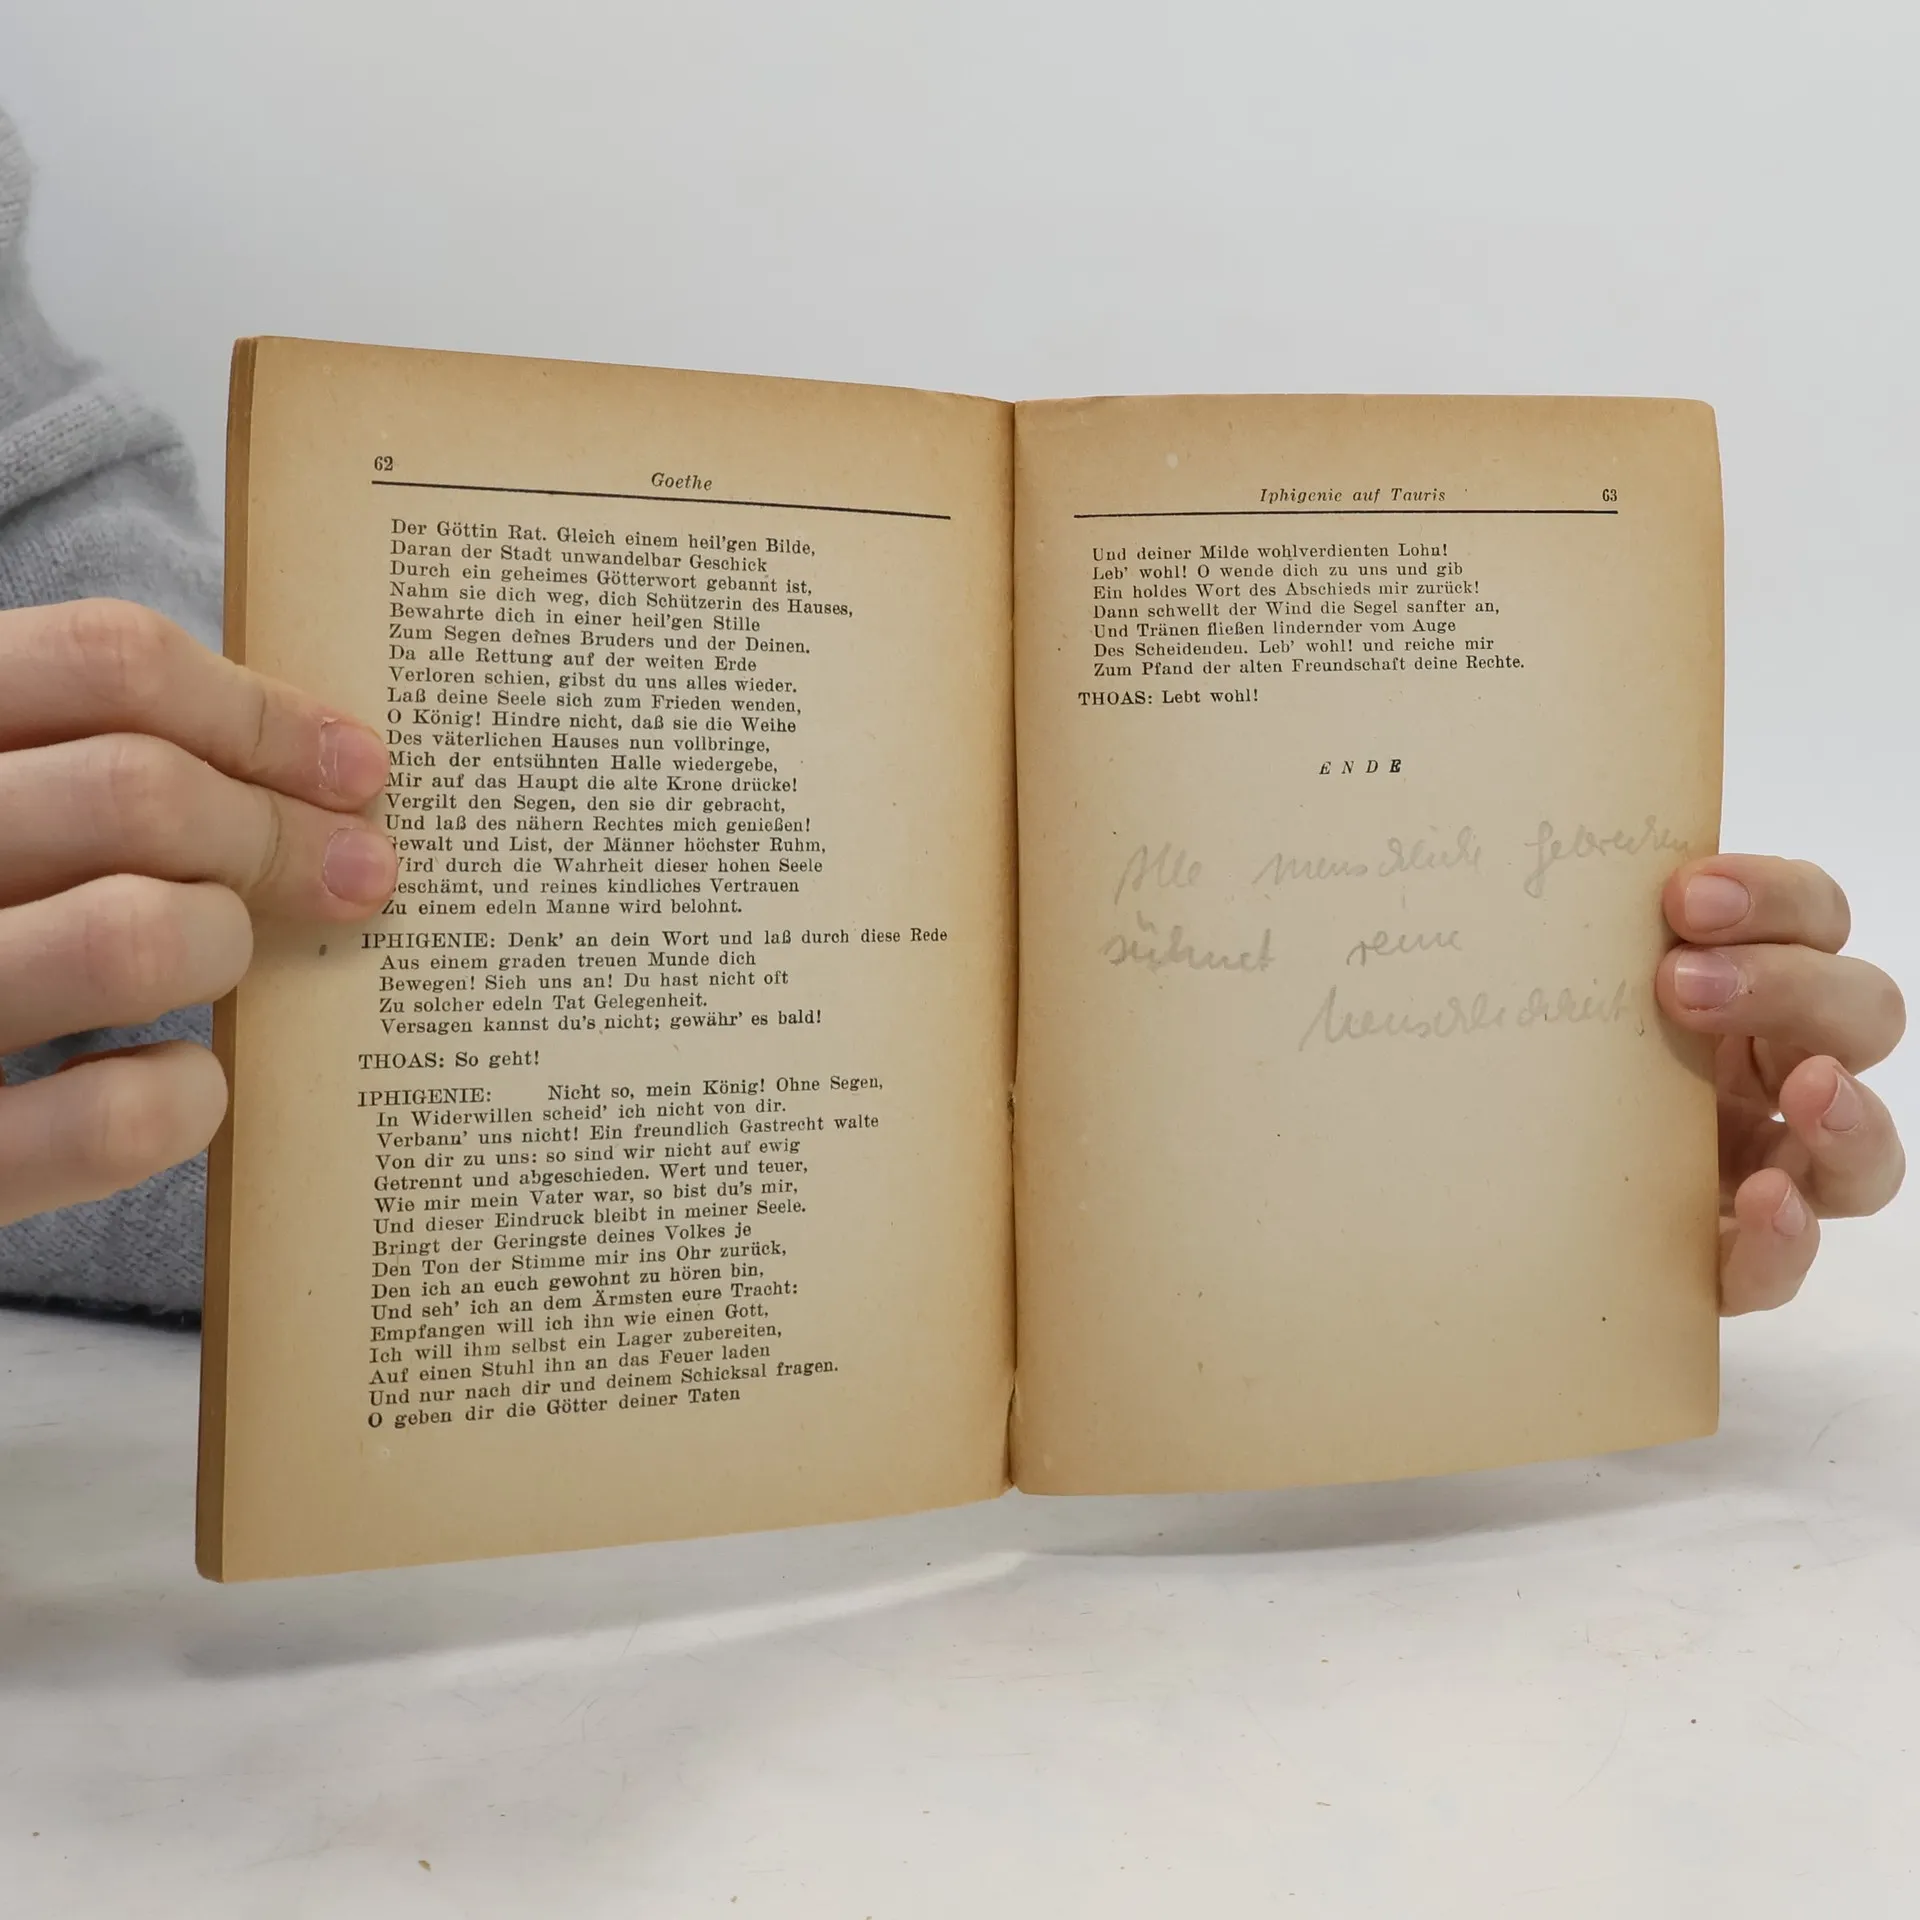 62
Goethe
Der Göttin Rat. Gleich einem heil'gen Bilde,
Daran der Stadt unwandelbar Geschick
Durch ein geheimes Götterwort gebannt ist,
Nahm sie dich weg, dich Schützerin des Hauses,
Bewahrte dich in einer heil'gen Stille
Zum Segen deines Bruders und der Deinen.
Da alle Rettung auf der weiten Erde
Verloren schien, gibst du uns alles wieder.
Laß deine Seele sich zum Frieden wenden,
O König! Hindre nicht, daß sie die Weihe
Des väterlichen Hauses nun vollbringe,
Mich der entsühnten Halle wiedergebe,
Mir auf das Haupt die alte Krone drücke!
Vergilt den Segen, den sie dir gebracht,
Und laß des nähern Rechtes mich genießen!
Gewalt und List, der Männer höchster Ruhm,
Wird durch die Wahrheit dieser hohen Seele
Beschämt, und reines kindliches Vertrauen
Zu einem edeln Manne wird belohnt.
IPHIGENIE: Denk' an dein Wort und laß durch diese Rede
Aus einem graden treuen Munde dich
Bewegen! Sieh uns an! Du hast nicht oft
Zu solcher edeln Tat Gelegenheit.
Versagen kannst du's nicht; gewähr' es bald!
THOAS: So geht!
IPHIGENIE: Nicht so, mein König! Ohne Segen,
In Widerwillen scheid' ich nicht von dir.
Verbann' uns nicht! Ein freundlich Gastrecht walte
Von dir zu uns: so sind wir nicht auf ewig
Getrennt und abgeschieden. Wert und teuer,
Wie mir mein Vater war, so bist du's mir,
Und dieser Eindruck bleibt in meiner Seele.
Bringt der Geringste deines Volkes je
Den Ton der Stimme mir ins Ohr zurück,
Den ich an euch gewohnt zu hören bin,
Und seh' ich an dem Ärmsten eure Tracht:
Empfangen will ich ihn wie einen Gott,
Ich will ihm selbst ein Lager zubereiten,
Auf einen Stuhl ihn an das Feuer laden
Und nur nach dir und deinem Schicksal fragen.
O geben dir die Götter deiner Taten
Iphigenie auf Tauris 63
Und deiner Milde wohlverdienten Lohn!
Leb' wohl! O wende dich zu uns und gib
Ein holdes Wort des Abschieds mir zurück!
Dann schwellt der Wind die Segel sanfter an,
Und Tränen fließen lindernder vom Auge
Des Scheidenden. Leb' wohl! und reiche mir
Zum Pfand der alten Freundschaft deine Rechte.
THOAS: Lebt wohl!
ENDE
Alle menschliche Gebrechen
sühnet reine
Menschlichkeit